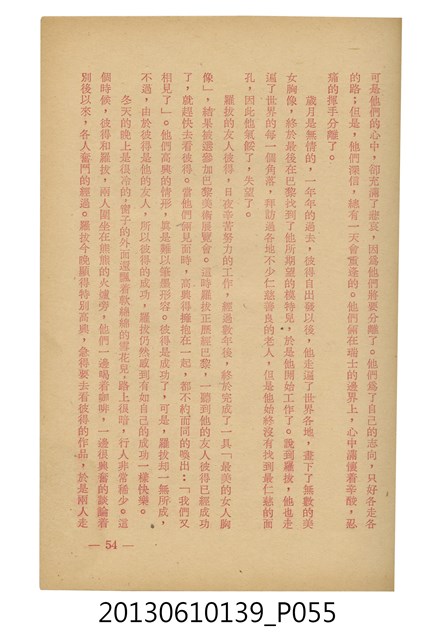 可是他們的心中，卻充滿了悲哀，因爲他們將要分離了。他們爲了自己的志向，只好各走各
的路；但是，他們深信，總有一天會重逢的。他們倆在瑞士的邊界上，心中滿懷着辛酸，忍
痛的揮手分離了。
歲月是無情的，一年年的過去，彼得自出發以後，他走遍了世界各地，畫下了無數的美
女胸像，終於最後在巴黎找到了他所期望的模特兒，於是他開始工作了。說到羅拔，他也走
遍了世界的每一個角落，拜訪過各地不少仁慈善良的老人，但是他始終沒有找到最仁慈的面
孔，因此他氣餒了，失望了。
羅拔的友人彼得，日夜辛苦努力的工作，經過數年後，終於完成了一具「最美的女人胸
像」，結果被選參加巴黎美術展覽會。這時羅拔正歷經巴黎，一聽到他的友人彼得已經成功
了，就趕快去看彼得。當他們倆見面時，高興得擁抱在一起，都不約而同的喚出：「我們又
相見了」。他們高興的情形，眞是難以筆墨形容。彼得是成功了，可是，羅拔却一無所成，
不過，由於彼得是他的友人，所以彼得的成功，羅拔仍然感到有如自己的成功一樣快樂。
冬天的晚上是很冷的，窗子的外面還飄着軟綿綿的雪花兒，路上很暗，行人非常稀少。這
個時候，彼得和羅拔，兩人圍坐在熊熊的火爐旁，他們一邊喝着咖啡，一邊很興奮的談論着
別後以來，各人奮鬥的經過。羅拔今晚顯得特別高興，急得要去看彼得的作品，於是兩人走
— 54 —
20130610139_P055